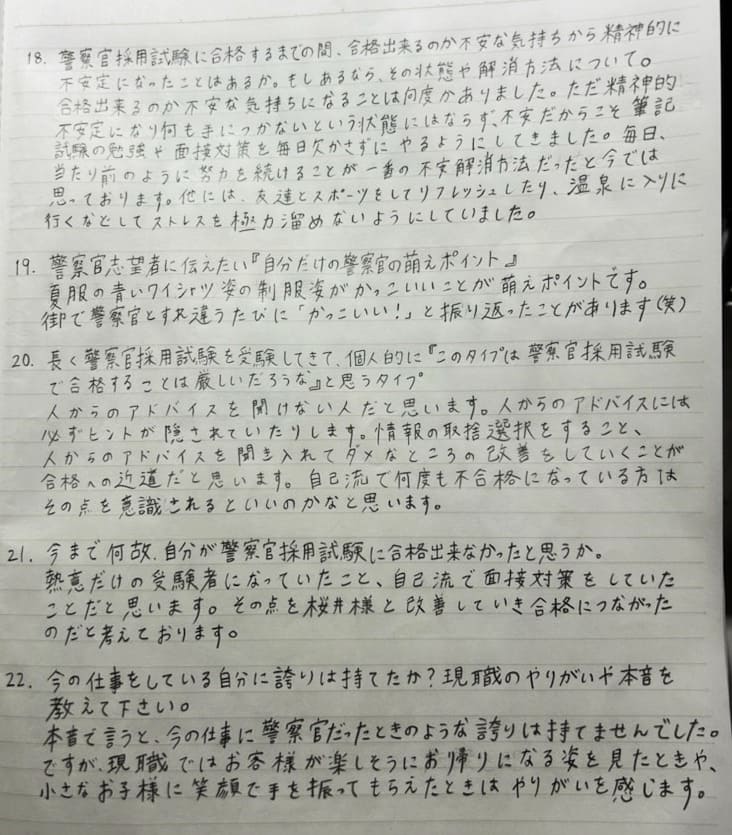 18. 警察官採用試験に合格するまでの間、合格出来るのか不安な気持ちから精神的に
不安定になったことはあるか。もしあるなら、その状態や解消方法について。
合格出来るのか不安な気持ちになることは何度かありました。ただ精神的
不安定になり何も手につかないという状態にはならず、不安だからこそ筆記
試験の勉強や面接対策を毎日欠かさずにやるようにしてきました。毎日、
当たり前のように努力を続けることが一番の不安解消方法だったと今では
思っております。他には、友達とスポーツをしてリフレッシュしたり、温泉に入りに
行くなどしてストレスを極力溜めないようにしていました。
19. 警察官志望者に伝えたい『自分だけの警察官の萌えポイント』
夏服の青いワイシャツ姿の制服姿がかっこいいことが萌えポイントです。
街で警察官とすれ違うたびに「かっこいい!」と振り返ったことがあります(笑)
20. 長く警察官採用試験を受験してきて、個人的に『このタイプは警察官採用試験
で合格することは厳しいだろうな』と思うタイプ
人からのアドバイスを聞けない人だと思います。人からのアドバイスには
必ずヒントが隠されていたりします。情報の取捨選択をすること、
人からのアドバイスを聞き入れてダメなところの改善をしていくことが
合格への近道だと思います。自己流で何度も不合格になっている方は
その点を意識されるといいのかなと思います。
21. 今まで何故、自分が警察官採用試験に合格出来なかったと思うか。
熱意だけの受験者になっていたこと、自己流で面接対策をしていた
ことだと思います。その点を桜井様と改善していき合格につながった
のだと考えております。
22. 今の仕事をしている自分に誇りは持てたか?現職のやりがいや本音を
教えて下さい。
本音で言うと、今の仕事に警察官だったときのような誇りは持てませんでした。
ですが、現職ではお客様が楽しそうにお帰りになる姿を見たときや、
小さなお子様に笑顔で手を振ってもらえたときはやりがいを感じます。